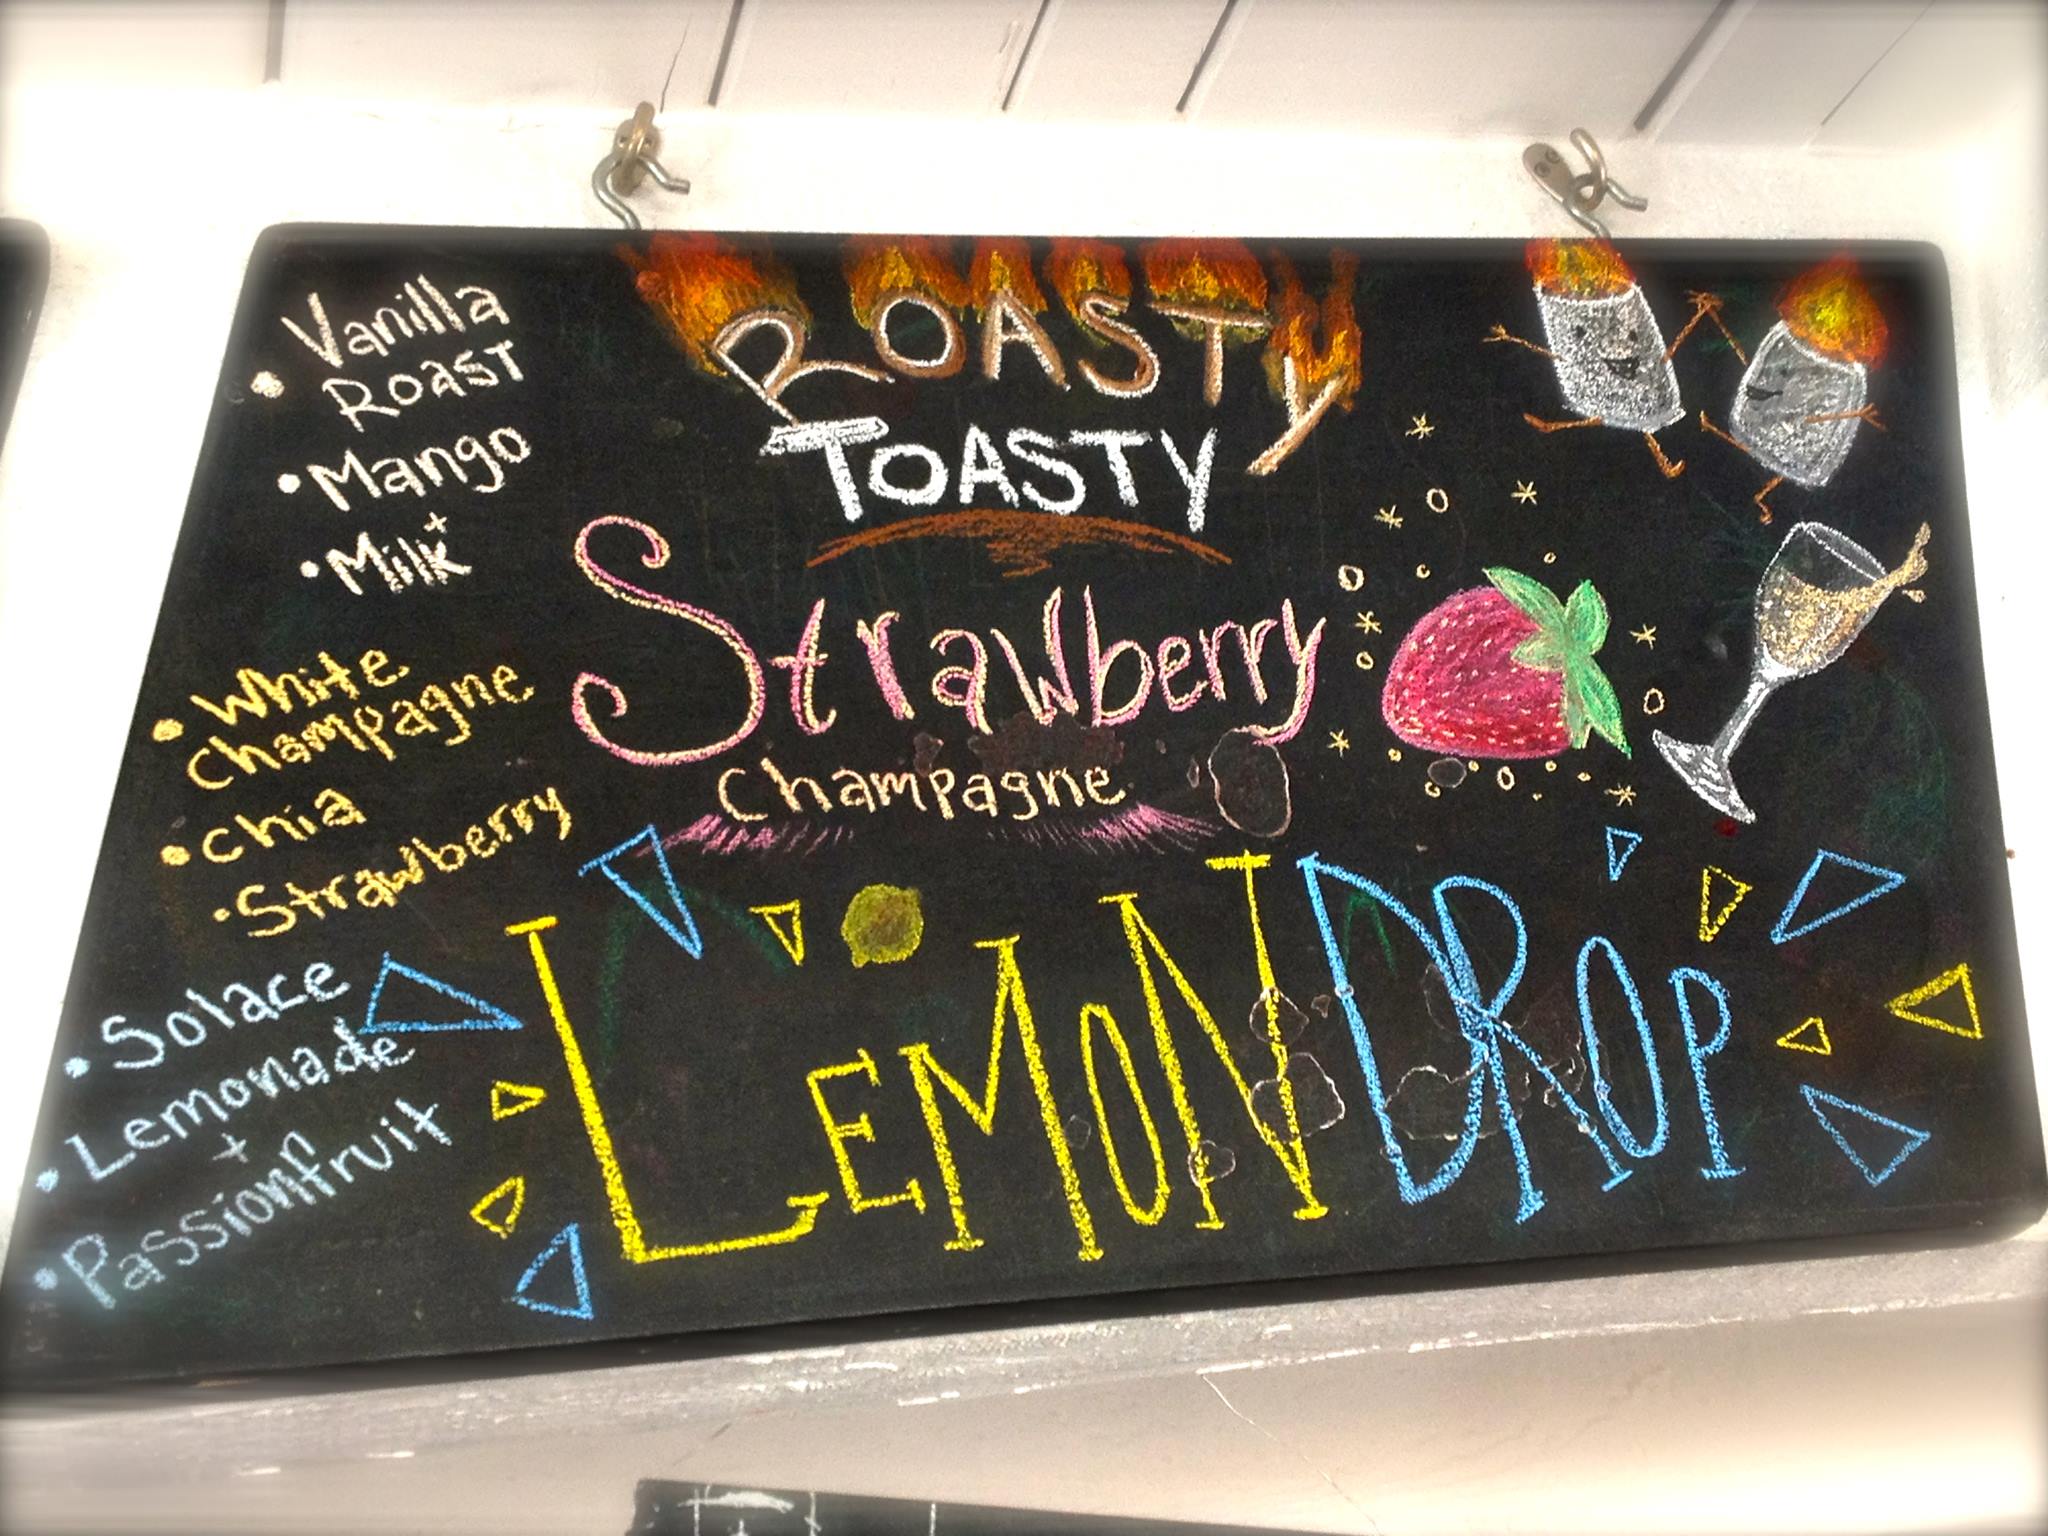 • Vanilla
Roast
• Mango
+
• Milk
ROASTY
TOASTY
• White
Champagne
• chia
• Strawberry
Strawberry
champagne
• Solace
• Lemonade
+
• Passionfruit
LEMON DROP